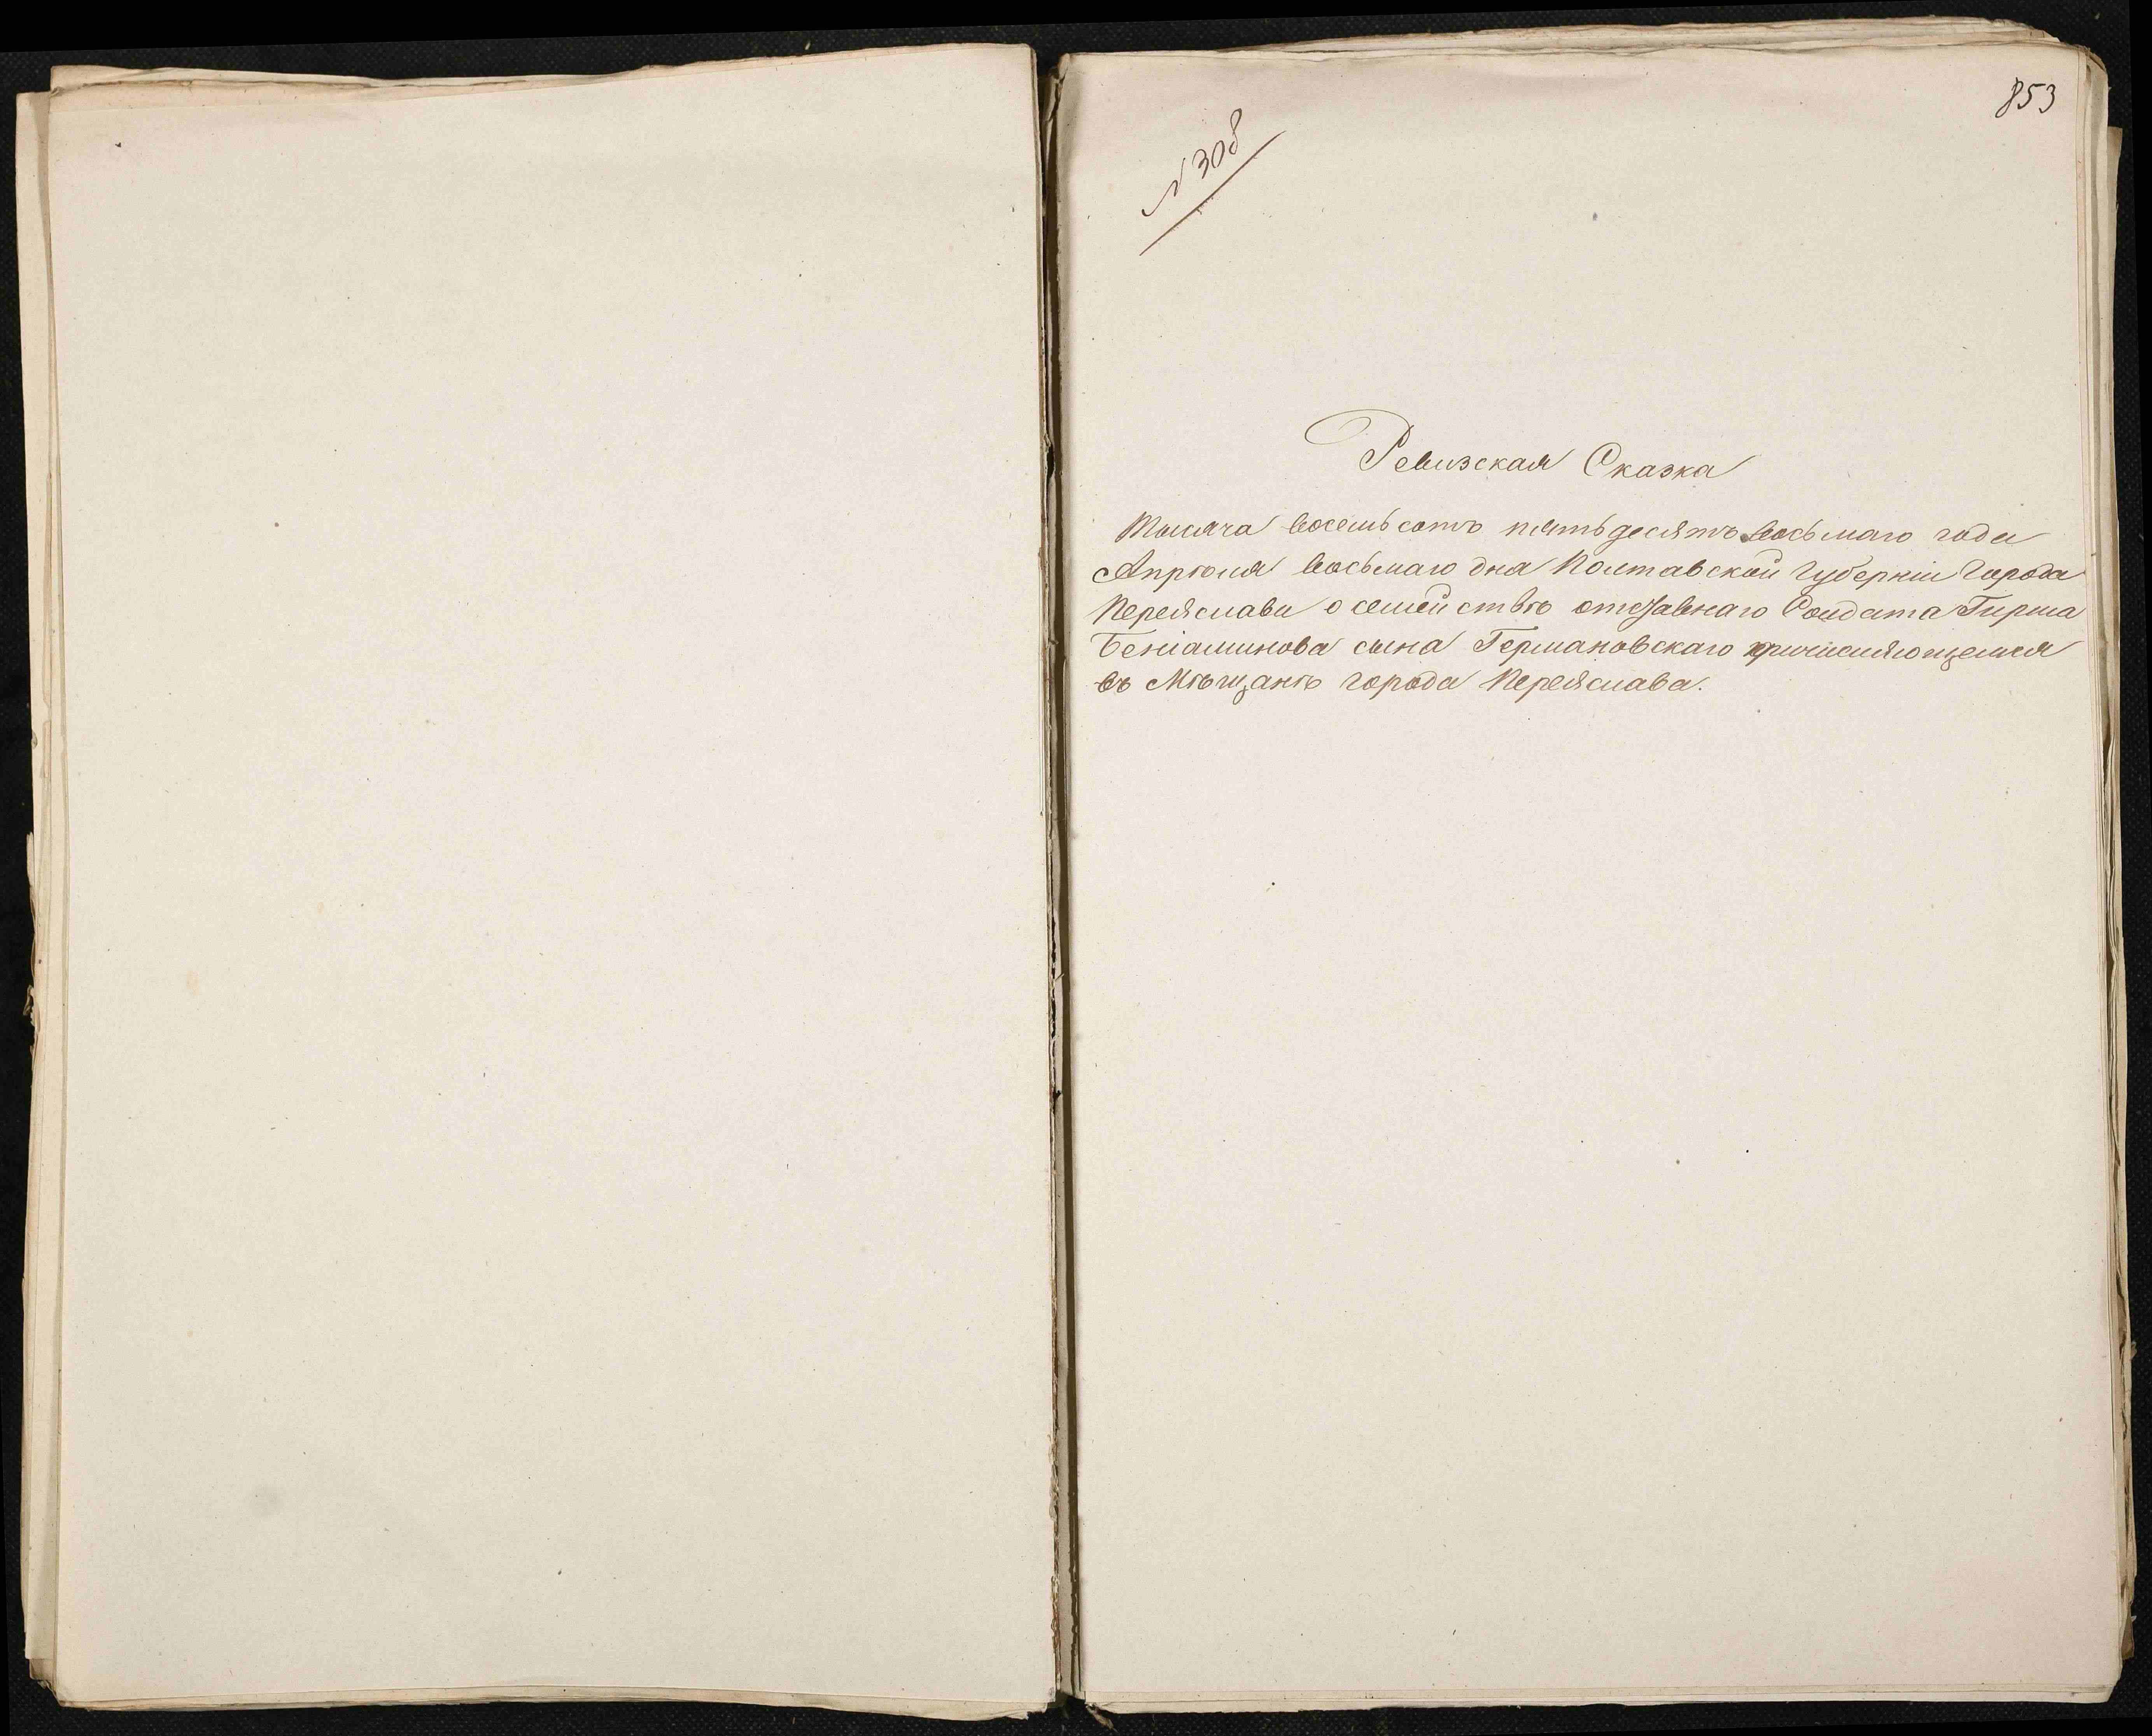 853
№ 308
Ревизская Сказка
Тысяча восемьсотъ пятьдесятъ восьмаго года
Апрѣля восьмаго дна Полтавской Губерніи Города
Переяслава о семействѣ отставнаго Солдата Гирша
Беніаминова сына Германовскаго причисляющемся
въ Мѣщанѣ города Переяслава.